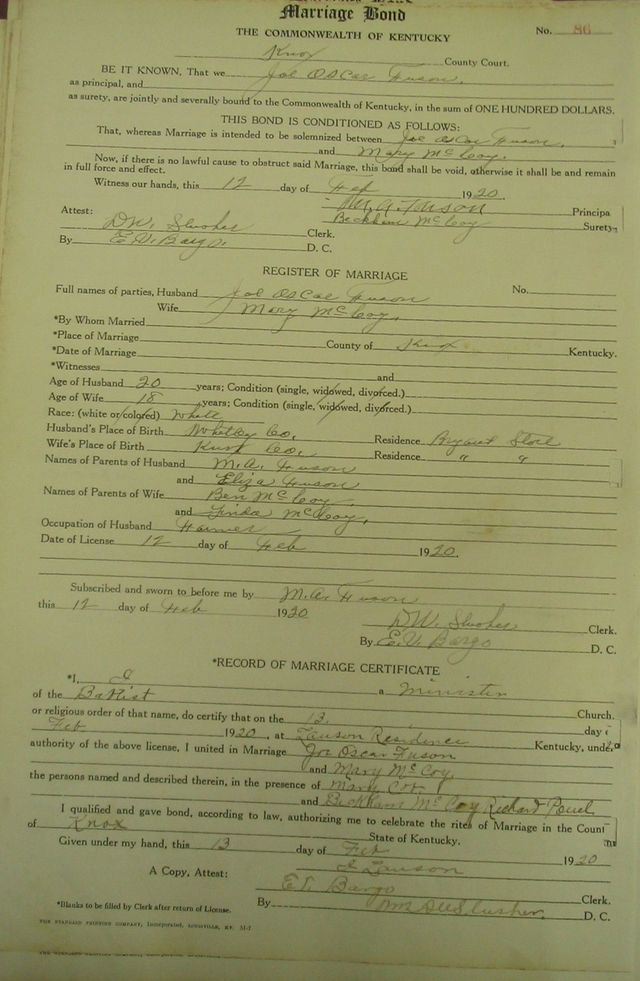 Marriage Bond
THE COMMONWEALTH OF KENTUCKY No. 86
Knox County Court.
BE IT KNOWN, That we Joe Oscar Fuson,
as principal, and
as surety, are jointly and severally bound to the Commonwealth of Kentucky, in the sum of ONE HUNDRED DOLLARS.
THIS BOND IS CONDITIONED AS FOLLOWS:
That, whereas Marriage is intended to be solemnized between Joe Oscar Fuson,
and Mary McCoy.
Now, if there is no lawful cause to obstruct said Marriage, this bond shall be void, otherwise it shall be and remain
in full force and effect.
Witness our hands, this 12 day of Feb 1920.
M. A. Fuson Principa
Attest: Beckham McCoy Surety
D.W. Slusher Clerk.
By E. V. Bargo. D. C.
REGISTER OF MARRIAGE
Full names of parties, Husband Joe Oscar Fuson No.
Wife Mary McCoy,
*By Whom Married
*Place of Marriage County of Knox Kentucky.
*Date of Marriage
*Witnesses and
Age of Husband 20 years; Condition (single, widowed, divorced.)
Age of Wife 18 years; Condition (single, widowed, divorced.)
Race: (white or colored) White
Husband's Place of Birth Whitley Co. Residence Bryant Store
Wife's Place of Birth Knox Co. Residence " "
Names of Parents of Husband M. A. Fuson
and Eliza Fuson
Names of Parents of Wife Ben McCoy,
and Linda McCoy,
Occupation of Husband Farmer
Date of License 12 day of Feb 1920.
Subscribed and sworn to before me by M. A. Fuson
this 12 day of Feb 1920
D.W. Slusher Clerk.
By E. V. Bargo D. C.
*RECORD OF MARRIAGE CERTIFICATE
*I, a Minister
of the Baptist Church.
or religious order of that name, do certify that on the 13 day
Feb 1920, at Lawson Residence Kentucky, under
authority of the above license, I united in Marriage Joe Oscar Fuson
and Mary McCoy,
the persons named and described therein, in the presence of Mary Cox
and Beckham McCoy Richard Powel
I qualified and gave bond, according to law, authorizing me to celebrate the rites of Marriage in the Count
of Knox State of Kentucky.
Given under my hand, this 13 day of Feb 1920
Lawson
A Copy, Attest: Bargo Clerk.
*Blanks to be filled by Clerk after return of License. By Slusher, D. C.
THE STANDARD PRINTING COMPANY, Incorporated, LOUISVILLE, KY.